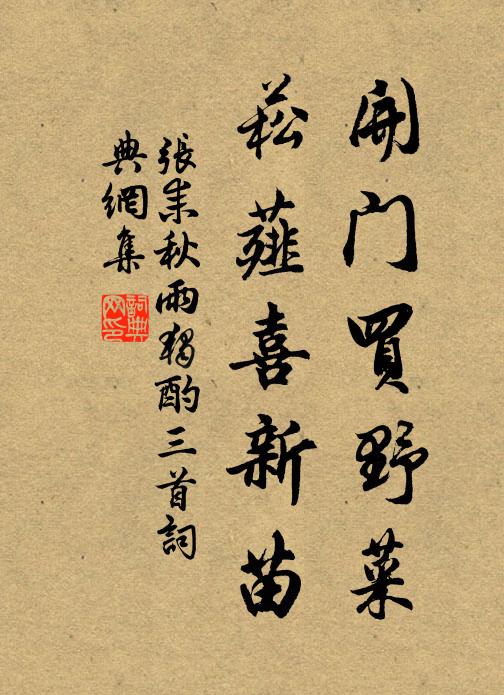 開門買野菜
菘薤喜新苗
張耒秋雨獨酌三首詞
典網集
詞典
网印